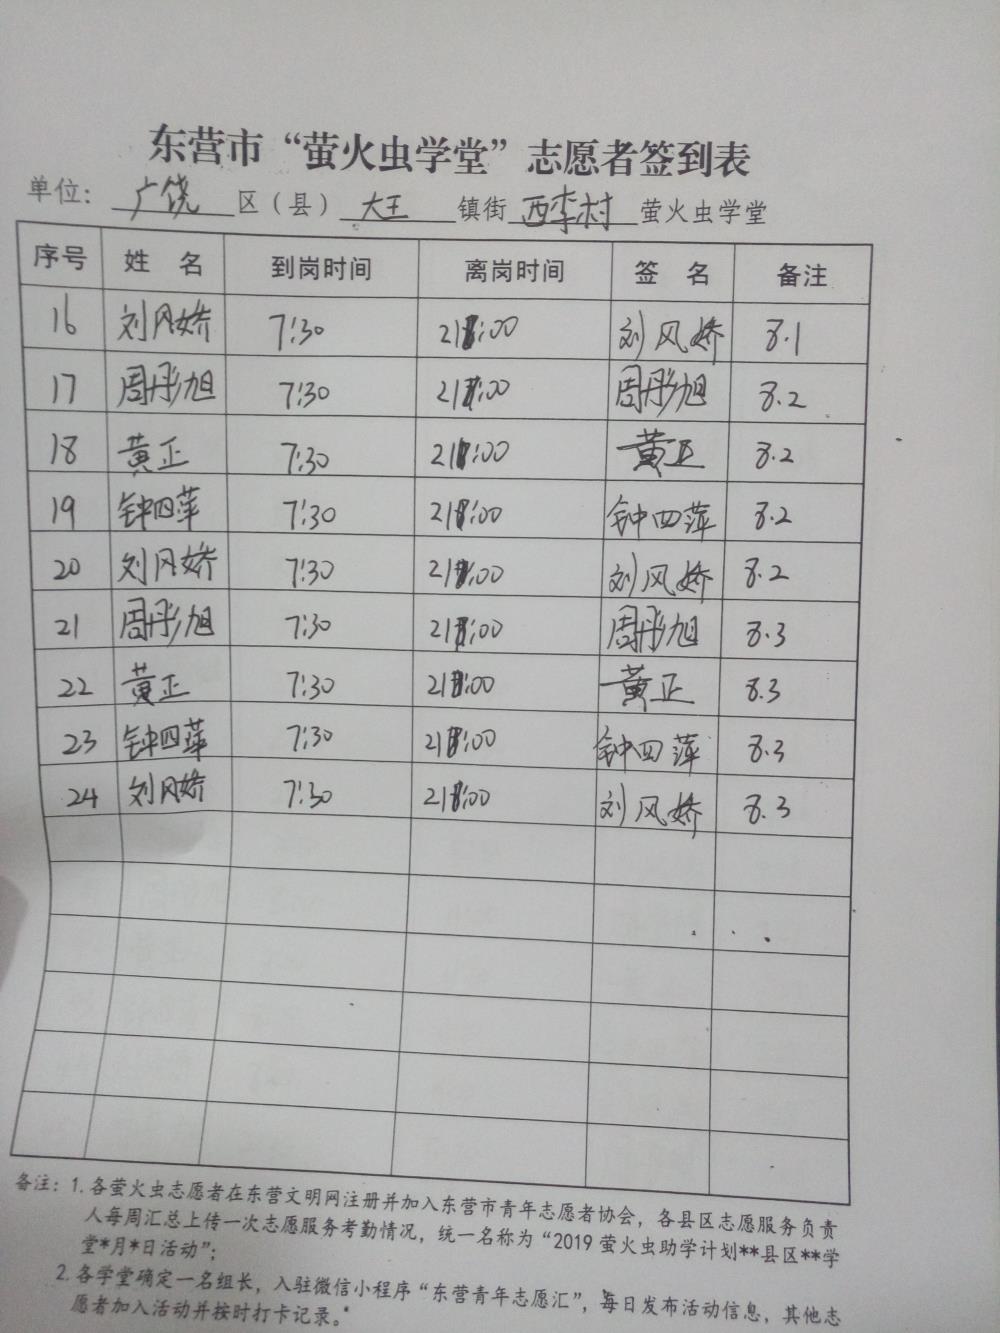 东营市“萤火虫学堂”志愿者签到表
单位：广饶区（县）大王镇街西李村萤火虫学堂
序号 姓 名 到岗时间 离岗时间 签 名 备注
16 刘风娇 7:30 刘风娇 8.1
17 周彤旭 7:30 周彤旭 8.2
18 黄正 7:30 黄正 8.2
19 钟四萍 7:30 钟四萍 8.2
20 刘风娇 7:30 刘风娇 8.2
21 周彤旭 7:30 周彤旭 8.3
22 黄正 7:30 黄正 8.3
23 钟四萍 7:30 钟四萍 8.3
24 刘风娇 7:30 刘风娇 8.3
备注：1.各萤火虫志愿者在东营文明网注册并加入东营市青年志愿者协会，各县区志愿服务负责
人每周汇总上传一次志愿服务考勤情况，统一名称为“2019萤火虫助学计划**县区**学
堂*月*日活动”；
2.各学堂确定一名组长，入驻微信小程序“东营青年志愿汇”，每日发布活动信息，其他志
愿者加入活动并按时打卡记录。